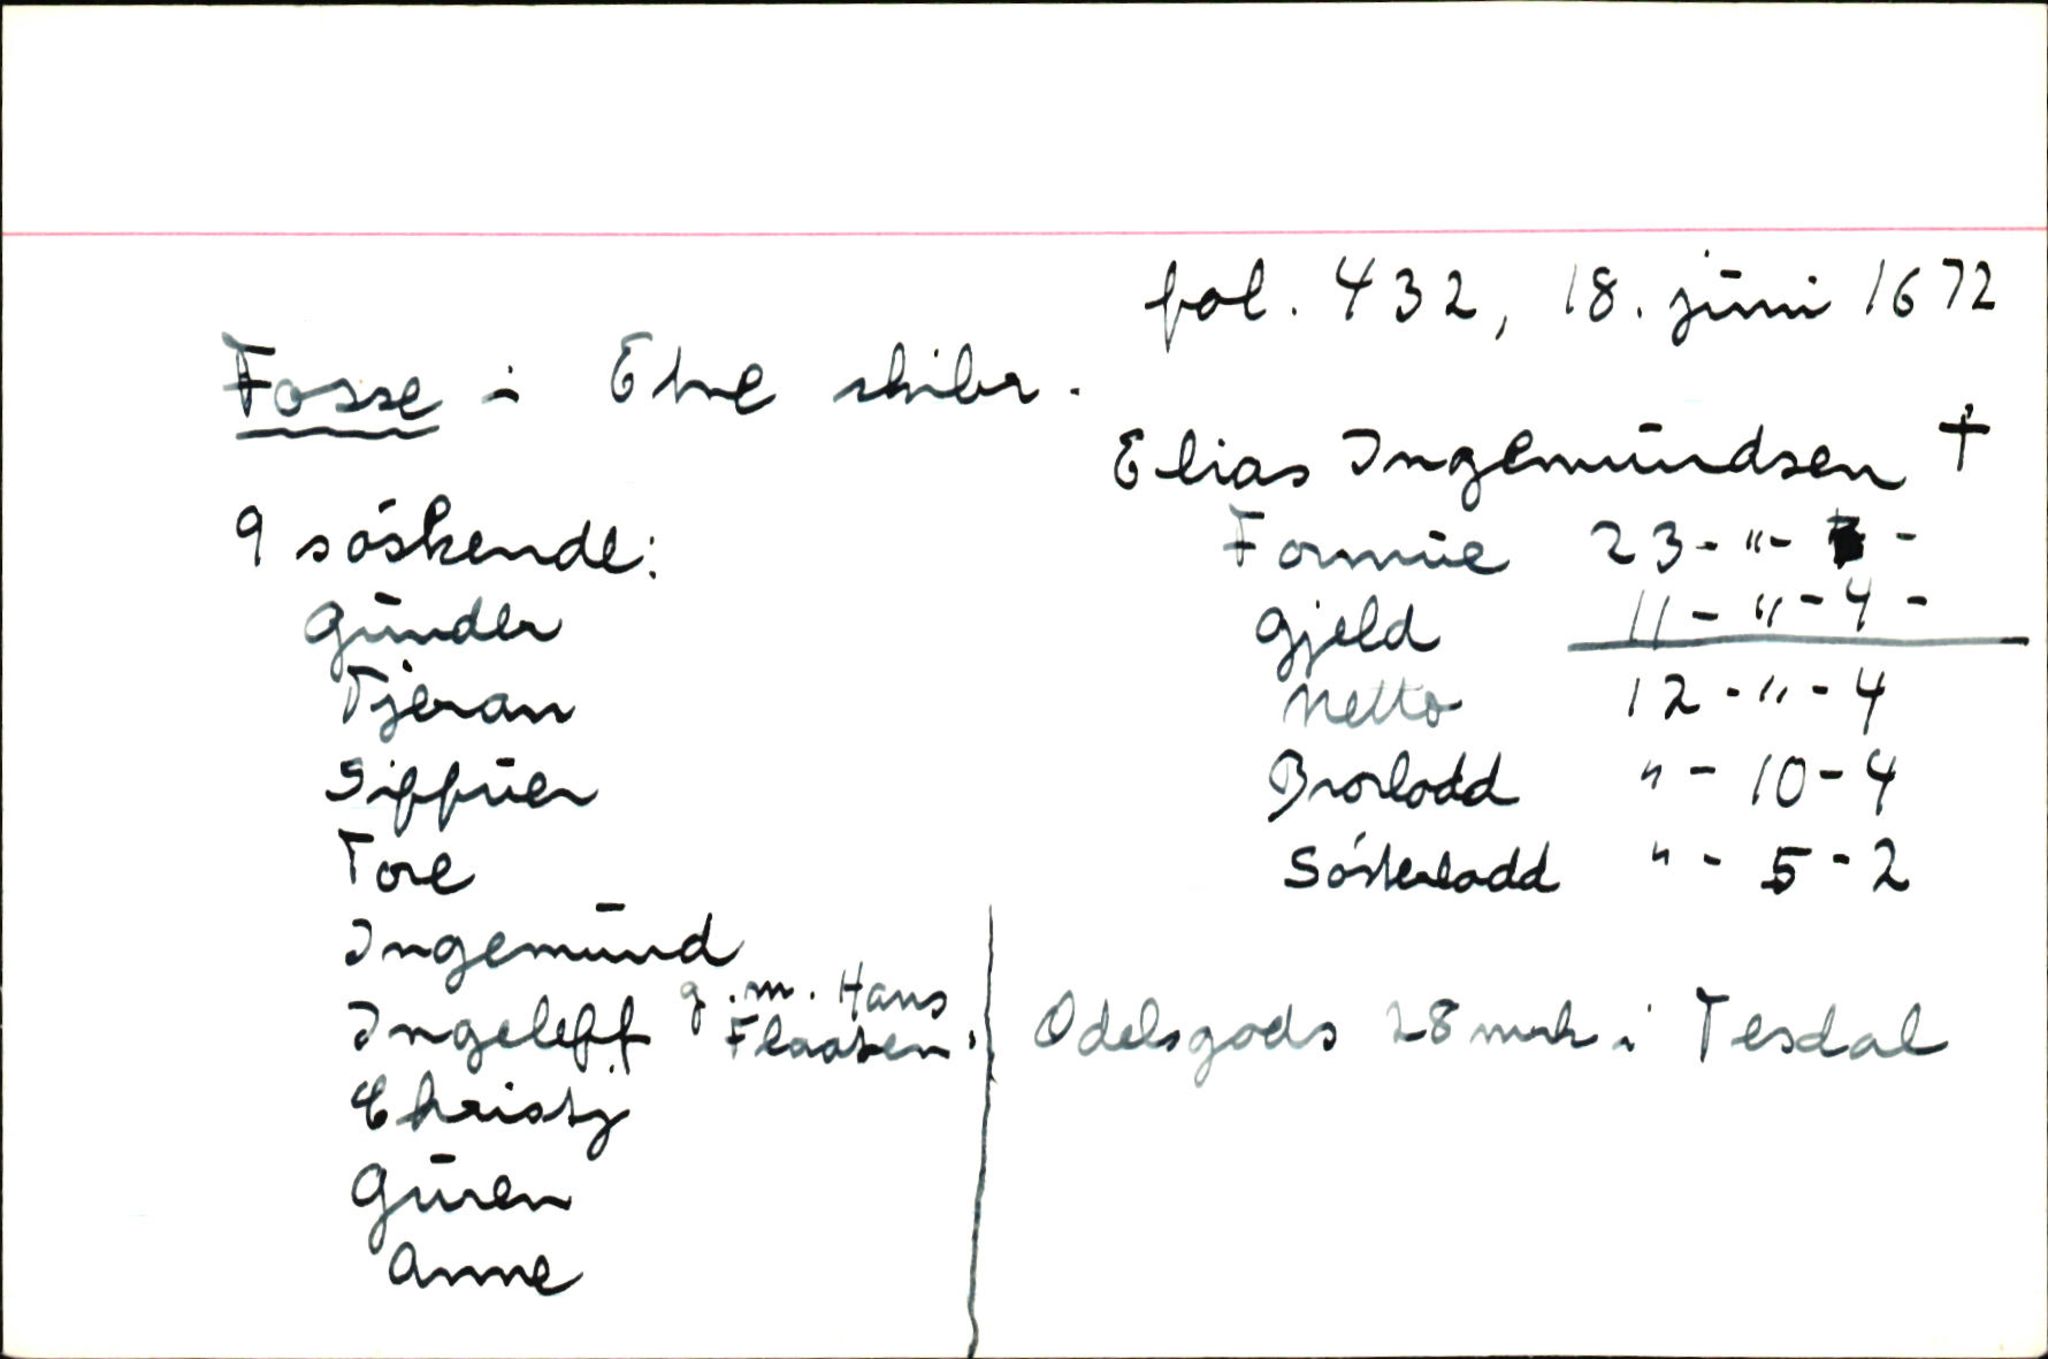 fol. 432, 18. juni 1672
Fosse i Etne skibr.
Elias Ingemundsen †
Formue 23 - " - -
Gjeld 11 - " - 4 -
Netto 12 - " - 4
Brorlodd " - 10 - 4
Sösterlodd " - 5 - 2
9 söskende:
Gunder
Tjeran
Siffuer
Tore
Ingemund
Ingeleff g.m. Hans
Flaaten.
Christj
Guren
Anne
Odelsgods 28 mrk i Tesdal